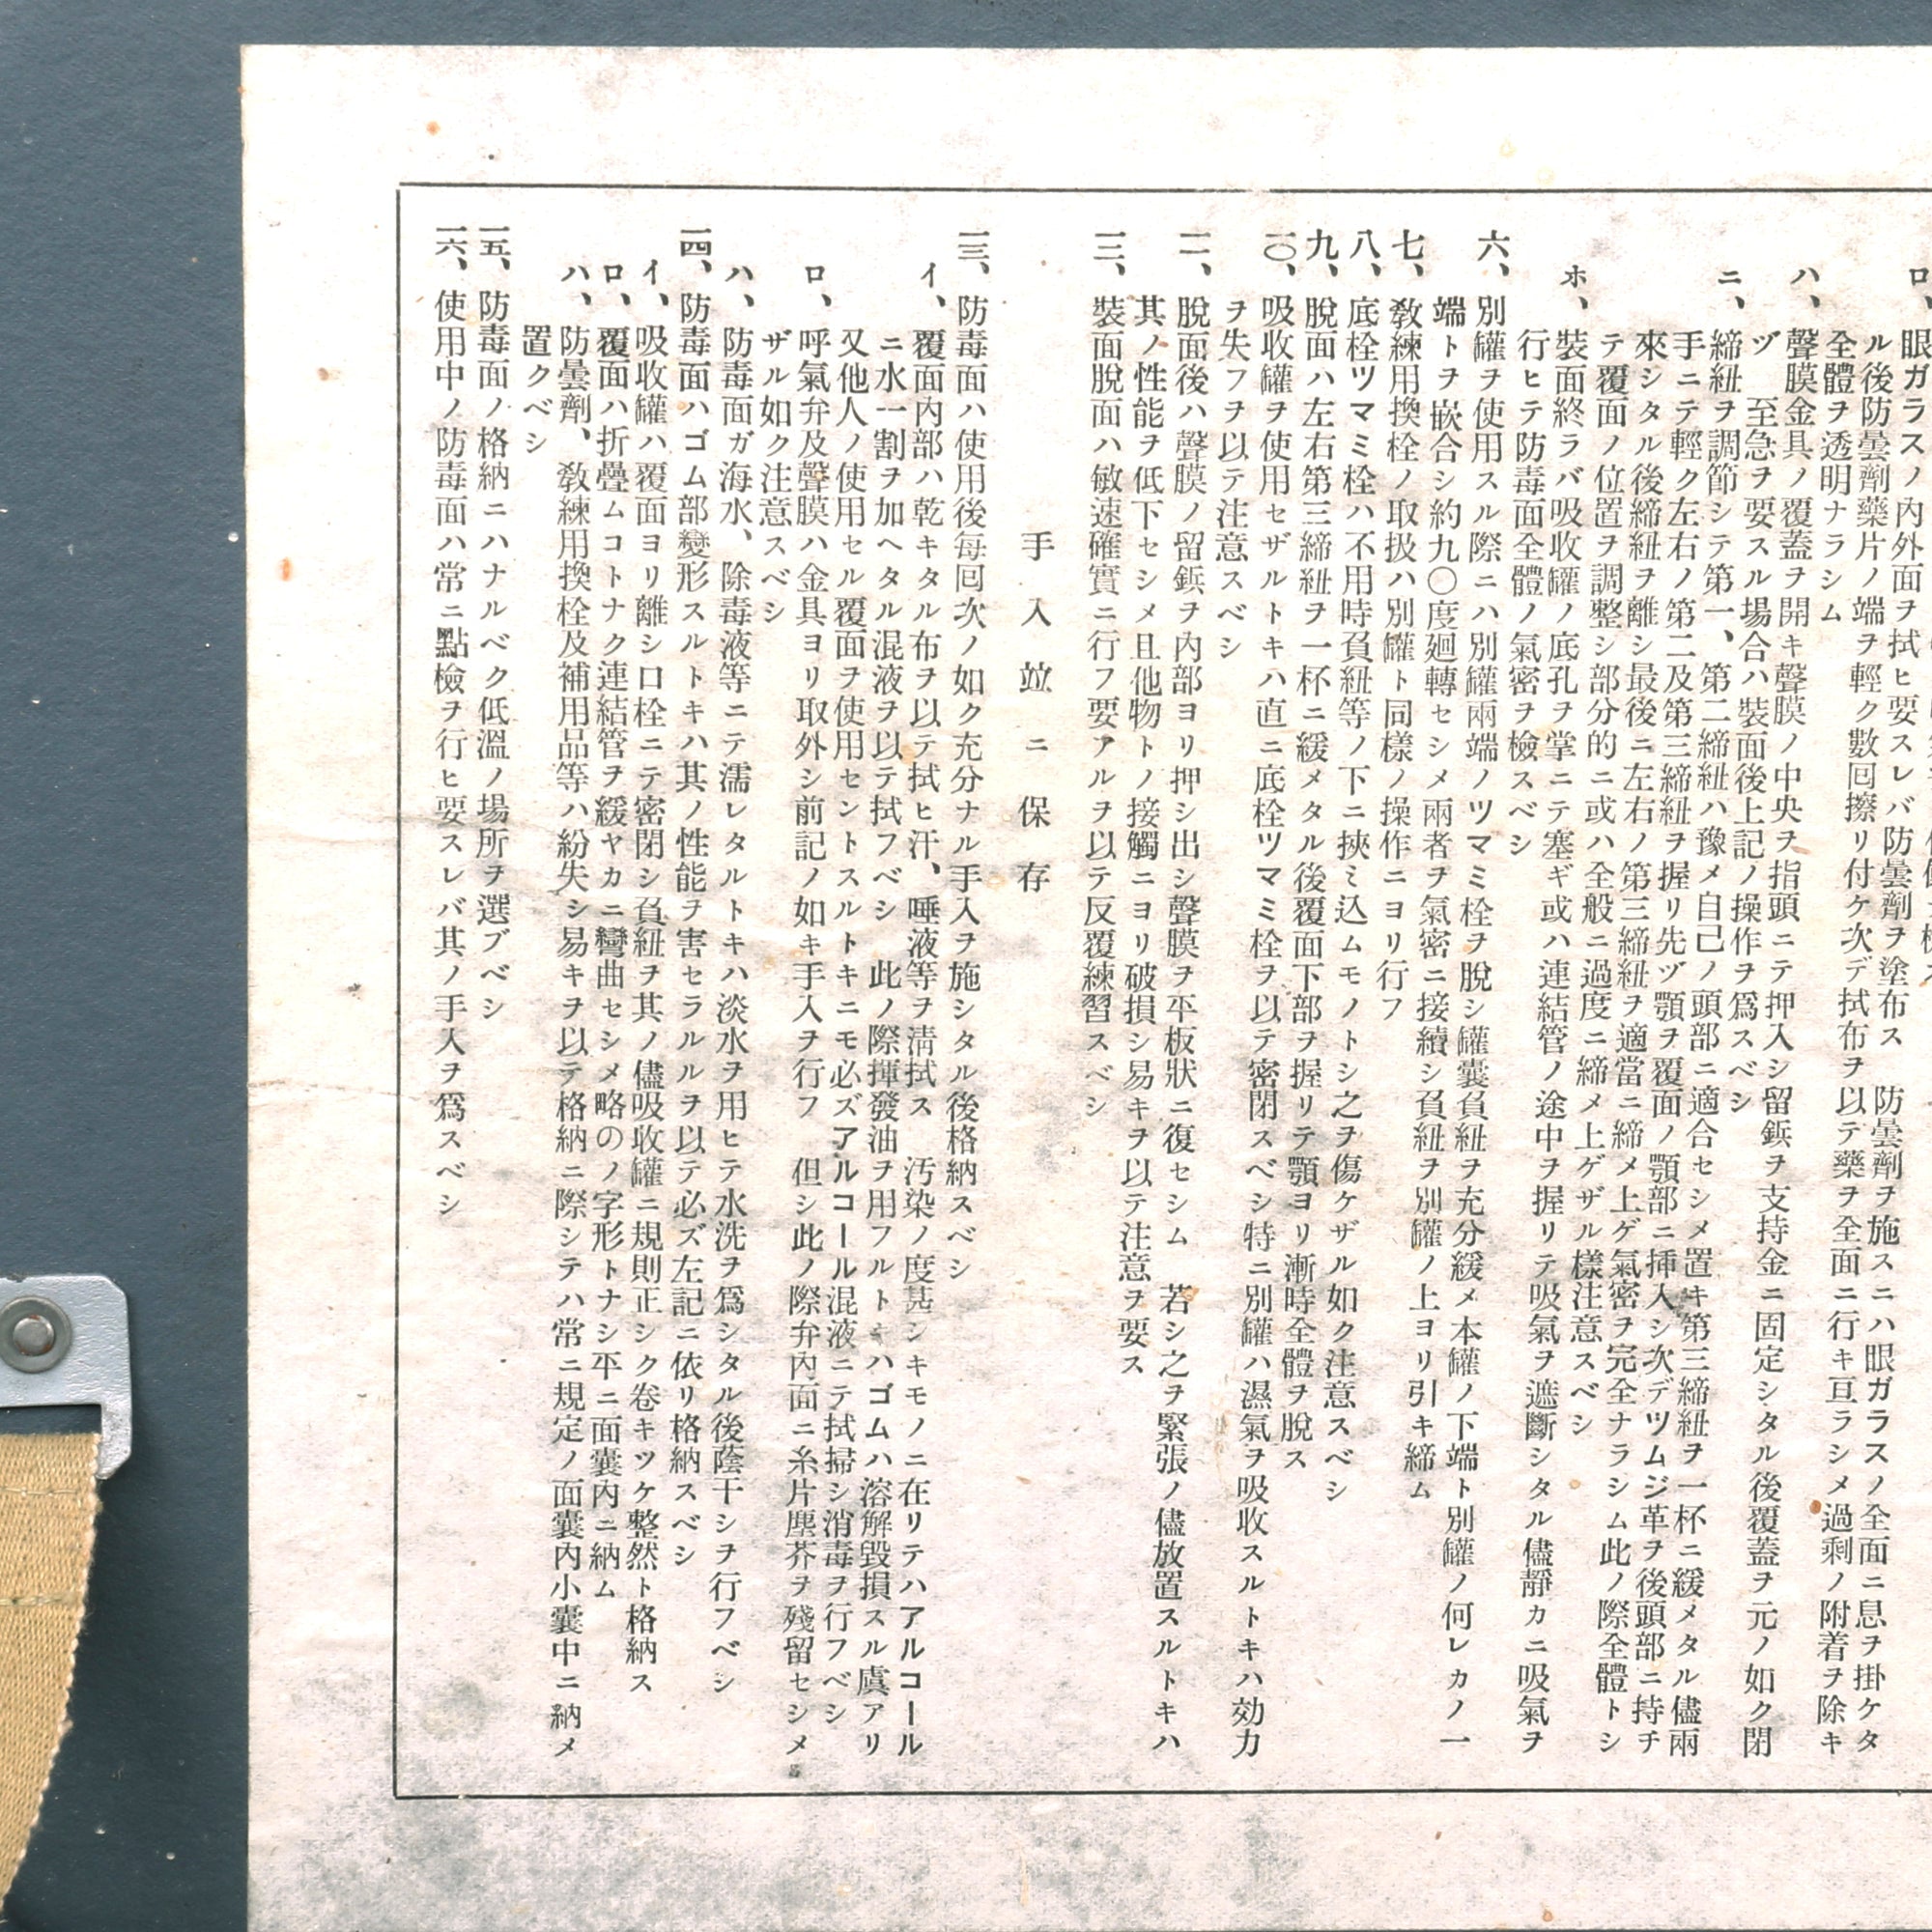 ロ、眼ガラスノ內外面ヲ拭ヒ要スレバ防曇劑ヲ塗布ス 防曇劑ヲ施スニハ眼ガラスノ全面ニ息ヲ掛ケタ
ル後防曇劑藥片ノ端ヲ輕ク數囘擦リ付ケ次デ拭布ヲ以テ藥ヲ全面ニ行キ亘ラシメ過剩ノ附着ヲ除キ
全體ヲ透明ナラシム
ハ、聲膜金具ノ覆蓋ヲ開キ聲膜ノ中央ヲ指頭ニテ押入シ留鋲ヲ支持金ニ固定シタル後覆蓋ヲ元ノ如ク閉
ヅ 至急ヲ要スル場合ハ裝面後上記ノ操作ヲ爲スベシ
ニ、締紐ヲ調節シテ第一、第二締紐ハ豫メ自己ノ頭部ニ適合セシメ置キ第三締紐ヲ一杯ニ緩メタル儘兩
手ニテ輕ク左右ノ第二及第三締紐ヲ握リ先ヅ顎ヲ覆面ノ顎部ニ挿入シ次デツムジ革ヲ後頭部ニ持チ
來シタル後締紐ヲ離シ最後ニ左右ノ第三締紐ヲ適當ニ締メ上ゲ氣密ヲ完全ナラシム此ノ際全體トシ
テ覆面ノ位置ヲ調整シ部分的ニ或ハ全般ニ過度ニ締メ上ゲザル樣注意スベシ
ホ、裝面終ラバ吸收罐ノ底孔ヲ掌ニテ塞ギ或ハ連結管ノ途中ヲ握リテ吸氣ヲ遮斷シタル儘靜カニ吸氣ヲ
行ヒテ防毒面全體ノ氣密ヲ檢スベシ
六、別罐ヲ使用スル際ニハ別罐兩端ノツマミ栓ヲ脫シ罐囊負紐ヲ充分緩メ本罐ノ下端ト別罐ノ何レカノ一
端トヲ嵌合シ約九〇度廻轉セシメ兩者ヲ氣密ニ接續シ負紐ヲ別罐ノ上ヨリ引キ締ム
七、敎練用換栓ノ取扱ハ別罐ト同樣ノ操作ニヨリ行フ
八、底栓ツマミ栓ハ不用時負紐等ノ下ニ挾ミ込ムモノトシ之ヲ傷ケザル如ク注意スベシ
九、脫面ハ左右第三締紐ヲ一杯ニ緩メタル後覆面下部ヲ握リテ顎ヨリ漸時全體ヲ脫ス
一〇、吸收罐ヲ使用セザルトキハ直ニ底栓ツマミ栓ヲ以テ密閉スベシ特ニ別罐ハ濕氣ヲ吸收スルトキハ効力
ヲ失フヲ以テ注意スベシ
一一、脫面後ハ聲膜ノ留鋲ヲ內部ヨリ押シ出シ聲膜ヲ平板狀ニ復セシム 若シ之ヲ緊張ノ儘放置スルトキハ
其ノ性能ヲ低下セシメ且他物トノ接觸ニヨリ破損シ易キヲ以テ注意ヲ要ス
一二、裝面脫面ハ敏速確實ニ行フ要アルヲ以テ反覆練習スベシ
手入竝ニ保存
一三、防毒面ハ使用後每囘次ノ如ク充分ナル手入ヲ施シタル後格納スベシ
イ、覆面內部ハ乾キタル布ヲ以テ拭ヒ汗、唾液等ヲ淸拭ス 汚染ノ度甚シキモノニ在リテハアルコール
ニ水一割ヲ加ヘタル混液ヲ以テ拭フベシ 此ノ際揮發油ヲ用フルトキハゴムハ溶解毀損スル虞アリ
又他人ノ使用セル覆面ヲ使用セントスルトキニモ必ズアルコール混液ニテ拭掃シ消毒ヲ行フベシ
ロ、呼氣弁及聲膜ハ金具ヨリ取外シ前記ノ如キ手入ヲ行フ 但シ此ノ際弁內面ニ糸片塵芥ヲ殘留セシメ
ザル如ク注意スベシ
ハ、防毒面ガ海水、除毒液等ニテ濡レタルトキハ淡水ヲ用ヒテ水洗ヲ爲シタル後蔭干シヲ行フベシ
一四、防毒面ハゴム部變形スルトキハ其ノ性能ヲ害セラルルヲ以テ必ズ左記ニ依リ格納スベシ
イ、吸收罐ハ覆面ヨリ離シ口栓ニテ密閉シ負紐ヲ其ノ儘吸收罐ニ規則正シク卷キツケ整然ト格納ス
ロ、覆面ハ折疊ムコトナク連結管ヲ緩ヤカニ彎曲セシメ略のノ字形トナシ平ニ面囊內ニ納ム
ハ、防曇劑、敎練用換栓及補用品等ハ紛失シ易キヲ以テ格納ニ際シテハ常ニ規定ノ面囊內小囊中ニ納メ
置クベシ
一五、防毒面ノ格納ニハナルベク低溫ノ場所ヲ選ブベシ
一六、使用中ノ防毒面ハ常ニ點檢ヲ行ヒ要スレバ其ノ手入ヲ爲スベシ